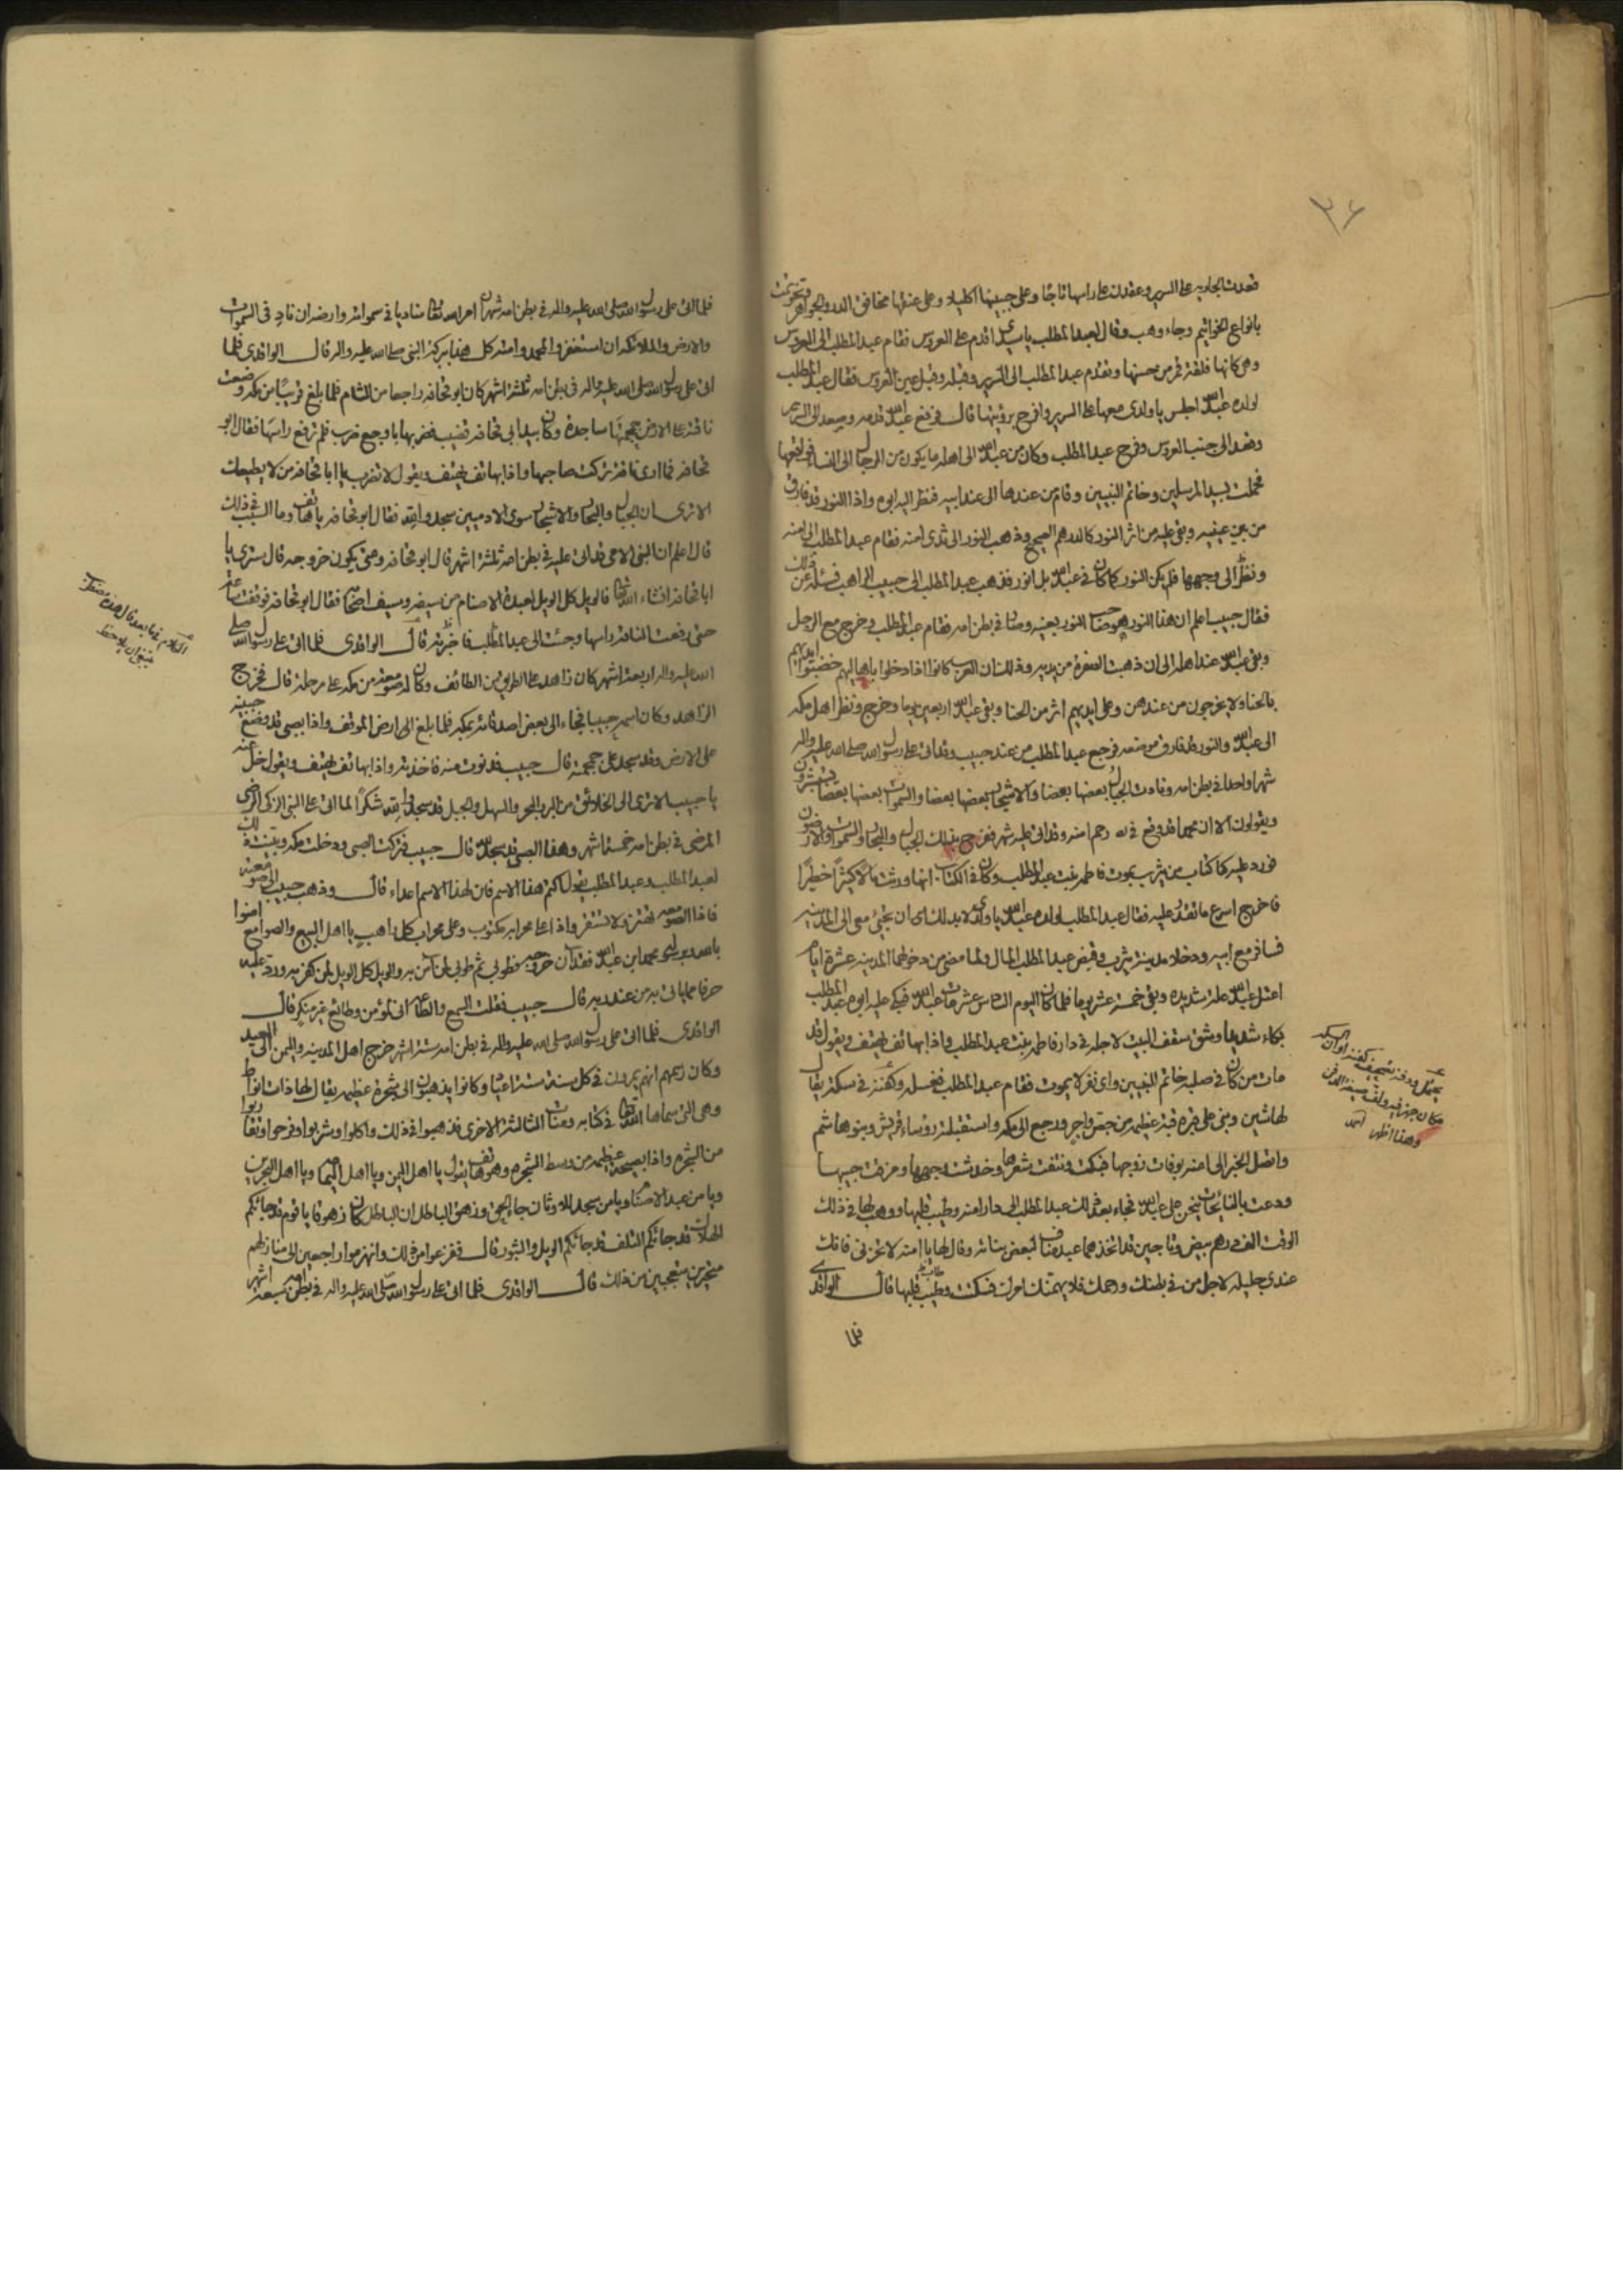 ٣٦
فعدت الجارية على السرير وعقدت على راسها تاجًا وعلى جبينها اكليلا وعلى عنقها مخانق الدر والجواهر وتختمت
بانواع الخواتيم وجاء وهب وقال لعبد المطلب يا سيدى اقدم على العروس فقام عبد المطلب الى العروس
وهى كانها فلقة قمر من حسنها وتقدم عبد المطلب الى السرير وقبله وقبل عين العروس فقال عبد المطلب
لولده عبد الله اجلس يا ولدى معها على السرير وافرح برؤيتها قال فرفع عبد الله قدمه وصعد الى السرير
وقعد الى جنب العروس وفرح عبد المطلب وكان من عبد الله الى اهله ما يكون من الرجال الى النساء فواقعها
فحملت بسيد المرسلين وخاتم النبيين وقام من عندها الى عند ابيه فنظر اليه ابوه واذا النور قد فارق
من بين عينيه وبقى عليه من اثر النور كالدرهم الصحيح وذهب النور الى ثدى امنه فقام عبد المطلب الى امنه
ونظر الى وجهها فلم يكن النور كما كان فى عبد الله بل انور فذهب عبد المطلب الى حبيب الراهب فسئله عن ذلك
فقال حبيب اعلم ان هذا النور هو صاحب النور بعينه وصار فى بطن امه فقام عبد المطلب وخرج مع الرجل
وبقى عبد الله عند اهله الى ان ذهبت الصفرة من يديه وذلك ان العرب كانوا اذا دخلوا باهاليهم خضبوا ايديهم
بالحناء ولا يخرجون من عندهن وعلى ايديهم اثر من الحنا وبقى عبد الله اربعين يوما وخرج ونظر اهل مكه
الى عبد الله والنور قد فارق موضعه فرجع عبد المطلب من عند حبيب وقد اتى على رسول الله صلى الله عليه واله
شهرا واحدا فى بطن امه ونادت الجبال بعضها بعضا والاشجار بعضها بعضا والسموات بعضها بعضا يستبشرون
ويقولون الا ان محمدا قد وقع فى رحم امنه وقد اتى عليه شهر ففرح بذلك الجبال والبحار والسموات والارضون
فورد عليه كتاب من يثرب بموت فاطمه بنت عبد المطلب وكان فى الكتاب انها ورثت مالا كثيرا خطيرا
فاخرج اسرع ما تقدر عليه فقال عبد المطلب لولده عبد الله يا ولدى لا بد لك ان تجئ معى الى المدينه
فسافر مع ابيه ودخلا مدينة يثرب وقبض عبد المطلب المال ولما مضى من دخولهما المدينه عشرة ايام
اعتل عبد الله علة شديده وبقى خمسة عشر يوما فلما كان اليوم السادس عشر مات عبد الله فبكى عليه ابوه عبد المطلب
بكاء شديدا وشق سقف البيت لاجله فى دار فاطمه بنت عبد المطلب واذا بهاتف يهتف ويقول قد
مات من كان فى صلبه خاتم النبيين واى نفر لا يموت فقام عبد المطلب فغسله وكفنه فى سكة يقال
لها شين وبنى على قبره قبة عظيمه من جص واجر ورجع الى مكه واستقبله رؤساء قريش وبنو هاشم
واتصل الخبر الى امنه بوفات زوجها فبكت ونتفت شعرها وخدشت وجهها ومزقت جيبها
ودعت بالنائحات ينحن على عبد الله فجاء بعد ذلك عبد المطلب الى دار امنه وطيب قلبها ووهب لها فى ذلك
الوقت الف درهم بيض وتاجين قد اتخذهما عبد مناف لبعض بناته وقال لها يا امنه لا تحزنى فانك
عندى جليله لاجل من فى بطنك ورحمك فلا يهمنك امرك فسكتت وطيب قلبها قال الواقدى
فلما
وهذا اظهر
فلما اتى على رسول الله صلى الله عليه واله فى بطن امه شهران امر الله تعالى مناديا فى سمواته وارضه ان ناد فى السموات
والارض والملائكه ان استغفروا لمحمد وامته كل هذا ببركة النبى صلى الله عليه واله قال الواقدى فلما
اتى على رسول الله صلى الله عليه واله فى بطن امه ثلثة اشهر كان ابو قحافه راجعا من الشام فلما بلغ قريبا من مكه وضعت
ناقته على الارض جمجمتها ساجدة وكان بيد ابى قحافه قضيب فضربها باوجع ضرب فلم ترفع راسها فقال ابو
قحافه فما ارى ناقة تركت صاحبها واذا بهاتف يهتف ويقول لا تضرب يا ابا قحافه من لا يطيعك
الا ترى ان الجبال والبحار والاشجار سوى الادميين سجدوا لله فقال ابو قحافه يا هاتف وما السبب فى ذلك
قال اعلم ان النبى الامى قد اتى عليه فى بطن امه ثلثة اشهر قال ابو قحافه ومتى يكون خروجه قال سترى يا
ابا قحافه انشاء الله تعالى فالويل كل الويل لعبدة الاصنام من سيفه وسيف اصحابه فقال ابو قحافه فوقفت ساعة
حتى رفعت الناقة راسها وجئت الى عبد المطلب فاخبرته قال الواقدى فلما اتى على رسول الله صلى
الله عليه واله اربعة اشهر كان زاهد على الطريق من الطائف وكان له صومعه من مكه على مرحلة قال فخرج
الزاهد وكان اسمه حبيبا فجاء الى بعض اصدقائه بمكه فلما بلغ الى ارض الموقف واذا بصبى قد وضع جبينه
على الارض وقد سجد على جمجمته قال حبيب فدنوت منه فاخذته واذا بهاتف يهتف ويقول خل عنه
يا حبيب الا ترى الى الخلائق من البر والبحر والسهل والجبل قد سجدوا لله شكرا لما اتى على النبى الزكى الرضى
المرضى فى بطن امه خمسة اشهر وهذا الصبى قد سجد لله قال حبيب فتركت الصبى ودخلت مكه وبينت ذلك
لعبد المطلب وعبد المطلب يقول اكتم هذا الاسم فان لهذا الاسم اعداء قال وذهب حبيب الى صومعته
فاذا الصومعه تهتز ولا تستقر واذا على محرابه مكتوب وعلى محراب كل راهب يا اهل البيع والصوامع امنوا
بالله وبرسوله محمد ابن عبد الله فقد ان خروجه فطوبى ثم طوبى لمن امن به والويل كل الويل لمن كفر به ورد عليه
حرفا مما ياتى به من عند ربه قال حبيب فقلت السمع والطاعة انى لمؤمن وطائع غير منكر قال
الواقدى فلما اتى على رسول الله صلى الله عليه واله فى بطن امه ستة اشهر خرج اهل المدينه واليمن الى العيد
وكان رسمهم انهم يمرون فى كل سنة ستة اعياد وكانوا يذهبون الى شجرة عظيمه يقال لها ذات انواط
وهى التى سماها الله تعالى فى كتابه ومناة الثالثة الاخرى فذهبوا فى ذلك واكلوا وشربوا وفرحوا وتقاربوا
من الشجره واذا بصيحة عظيمه من وسط الشجره وهو هاتف يقول يا اهل اليمن ويا اهل اليمامه ويا اهل البحرين
ويا من عبد الاصنام ويا من سجد للاوثان جاء الحق وزهق الباطل ان الباطل كان زهوقا يا قوم قد جائكم
الهلاك قد جائكم التلف قد جائكم الويل والثبور قال ففزعوا من ذلك وانهزموا راجعين الى منازلهم
متحيرين متعجبين من ذلك قال الواقدى فلما اتى على رسول الله صلى الله عليه واله فى بطن امه سبعة اشهر